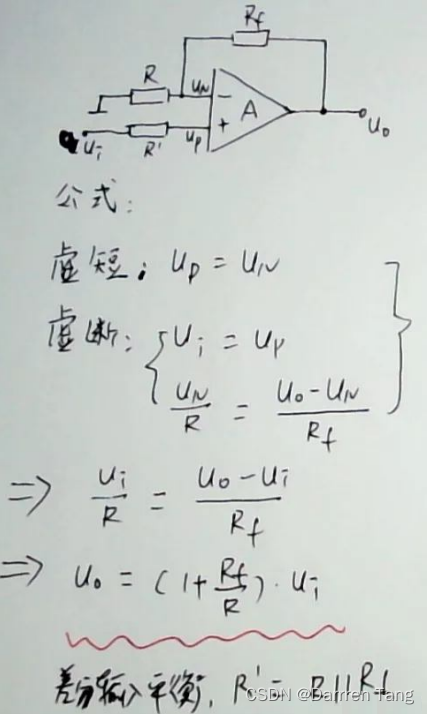 Rf
R
uN
-
A
+
ui
R'
up
uo
公式:
虚短: up = uN
虚断: ui = up
uN/R = (uo - uN)/Rf
=> ui/R = (uo - ui)/Rf
=> uo = (1+Rf/R)·ui
差分输入平衡, R' = R||Rf
CSDN @Darrren Tang